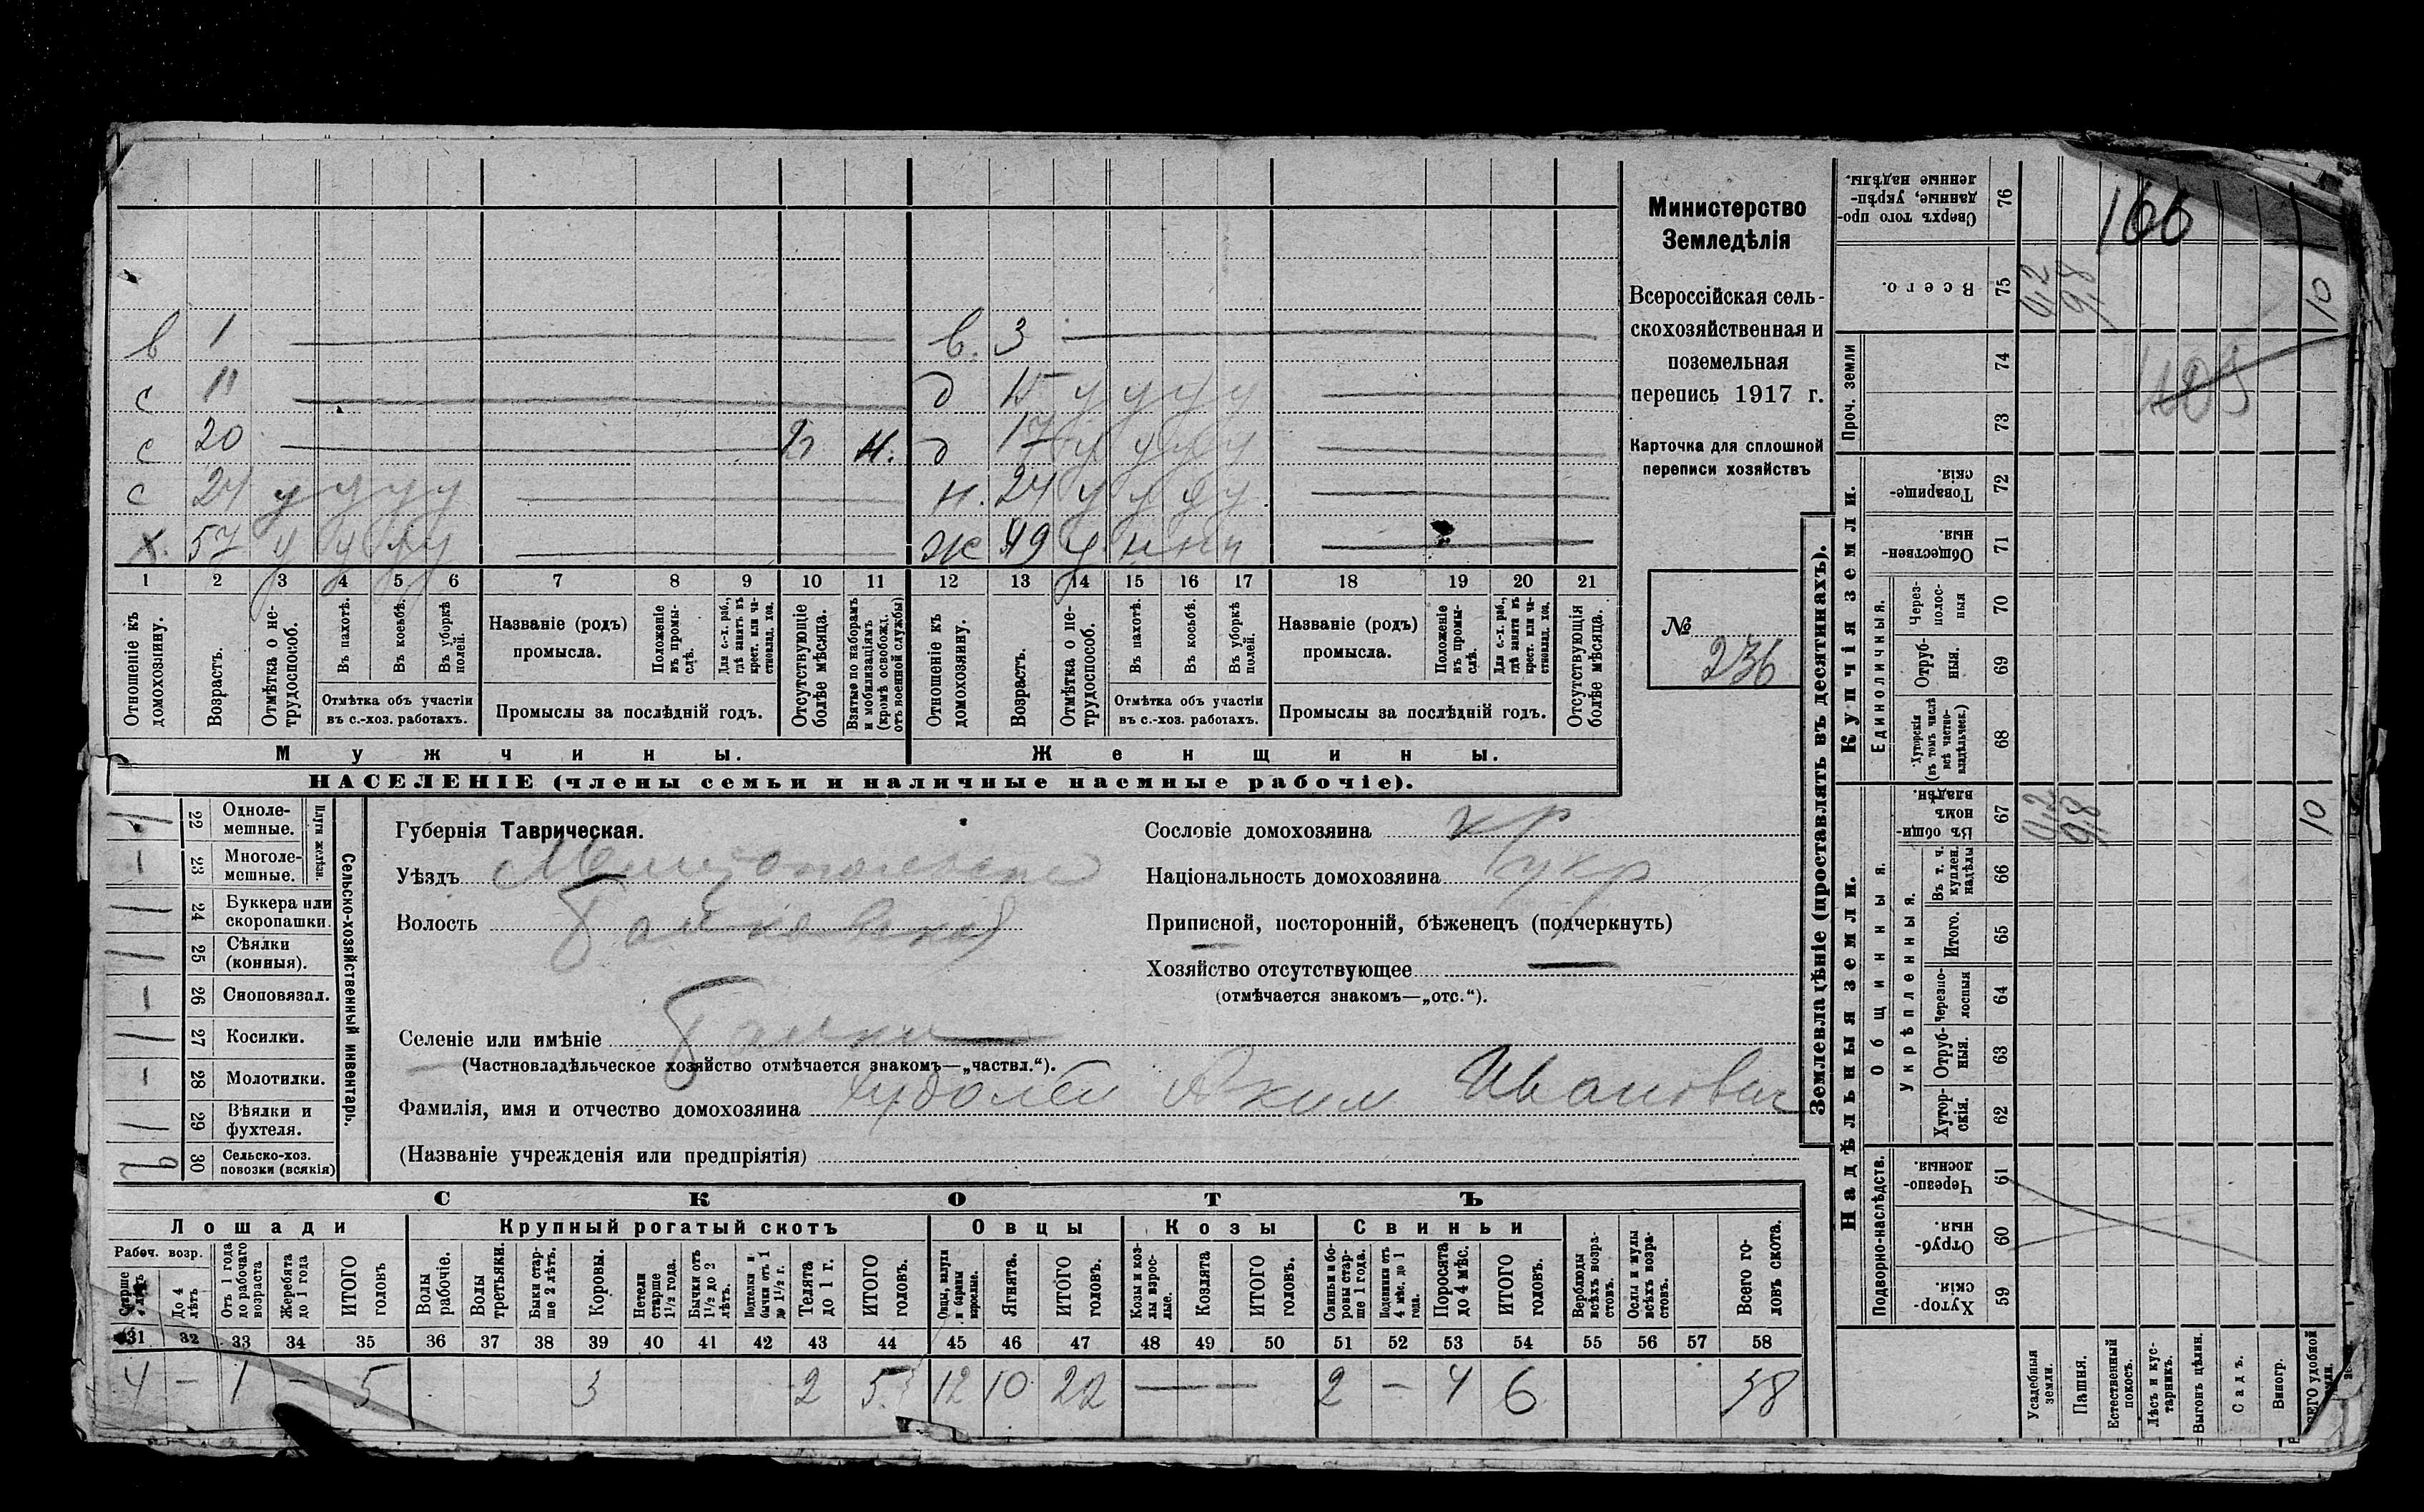 Министерство
Земледѣлія
Всероссійская сель-
скохозяйственная и
поземельная
перепись 1917 г.
Карточка для сплошной
переписи хозяйствъ
№ 236
в 1 в. 3
с 11 д 15 у у у у
с 20 н. д 17 у у у у
с 24 у у у у н. 24 у у у у
х. 57 у у у у ж 49 у н н н
1 2 3 4 5 6 7 8 9 10 11 12 13 14 15 16 17 18 19 20 21
Отношеніе къ домохозяину.
Возрастъ.
Отмѣтка о нетрудоспособ.
Въ пахотѣ.
Въ косьбѣ.
Въ уборкѣ полей.
Отмѣтка объ участіи
въ с.-хоз. работахъ.
Названіе (родъ)
промысла.
Положеніе въ промы-
слѣ.
Для с.-х. раб., гдѣ занятъ въ крест. или частновлад. хоз.
Промыслы за послѣдній годъ.
Отсутствующіе болѣе мѣсяца.
Взятые по наборамъ и мобилизаціямъ (кромѣ освобожд. отъ военной службы)
Отношеніе къ домохозяину.
Возрастъ.
Отмѣтка о нетрудоспособ.
Въ пахотѣ.
Въ косьбѣ.
Въ уборкѣ полей.
Отмѣтка объ участіи
въ с.-хоз. работахъ.
Названіе (родъ)
промысла.
Положеніе въ промы-
слѣ.
Для с.-х. раб., гдѣ занята въ крест. или частновлад. хоз.
Промыслы за послѣдній годъ.
Отсутствующія болѣе мѣсяца.
Мужчины. Женщины.
НАСЕЛЕНІЕ (члены семьи и наличные наемные рабочіе).
Сельско-хозяйственный инвентарь.
Плуги желѣзн.
22 Одноле-
мешные. 1
23 Многоле-
мешные. 1
24 Буккера или
скоропашки. 1
25 Сѣялки
(конныя). 1
26 Сноповязал. 1
27 Косилки. 1
28 Молотилки. 1
29 Вѣялки и
фухтеля. 1
30 Сельско-хоз.
повозки (всякія)
Губернія Таврическая.
Уѣздъ Мелитопольскій
Волость
Селеніе или имѣніе
(Частновладѣльческое хозяйство отмѣчается знакомъ—„частвл.“).
Фамилія, имя и отчество домохозяина Аким Иванович
(Названіе учрежденія или предпріятія)
Сословіе домохозяина кр
Національность домохозяина укр
Приписной, посторонній, бѣженецъ (подчеркнуть)
Хозяйство отсутствующее —
(отмѣчается знакомъ—„отс.“).
СКОТЪ
Лошади Крупный рогатый скотъ Овцы Козы Свиньи
Рабоч. возр.
Старше 4 лѣтъ
До 4 лѣтъ
Отъ 1 года до рабочаго возраста
Жеребята до 1 года
ИТОГО головъ
Волы рабочіе.
Волы третьяки.
Быки стар-
ше 2 лѣтъ.
Коровы.
Нетели старше 1½ года.
Бычки отъ 1½ до 2 лѣтъ.
Подтелки и бычки отъ 1 до 1½ г.
Телята до 1 г.
ИТОГО головъ.
Овцы, валухи и бараны взрослые.
Ягнята.
ИТОГО головъ.
Козы и коз-
лы взрос-
лые.
Козлята
ИТОГО головъ.
Свиньи и бо-
ровы стар-
ше 1 года.
Подсвинки отъ 4 мѣс. до 1 года.
Поросята до 4 мѣс.
ИТОГО головъ.
Верблюды всѣхъ возра-
стовъ.
Ослы и мулы всѣхъ возра-
стовъ.
Всего го-
ловъ скота.
31 32 33 34 35 36 37 38 39 40 41 42 43 44 45 46 47 48 49 50 51 52 53 54 55 56 57 58
4 — 1 — 5 3 2 5 12 10 22 — — — 2 — 4 6 38
Землевладѣніе (проставлять въ десятинахъ).
Надѣльныя земли. Купчія земли. Проч. земли
Подворно-наслѣдств.
Общинныя.
Укрѣпленныя.
Единоличныя.
Хутор-
скія. 59
Отруб-
ныя. 60
Черезпо-
лосныя. 61
Хутор-
скія. 62
Отруб-
ныя. 63
Черезпо-
лосныя 64
Итого. 65
Въ т. ч. куплен. надѣлы 66
Въ общин-
номъ владѣн. 67
Хуторскія (въ томъ числѣ всѣ частно-
владѣльческ.) 68
Отруб-
ныя. 69
Через-
полос-
ныя 70
Обществен-
ныя 71
Товарище-
скія. 72
73
74
Всего. 75
Сверхъ того про-
данные, укрѣп-
ленные надѣлы. 76
Усадебныя земли. 0,2 0,2
Пашня. 9,8 9,8
Естественный покосъ.
Лѣсъ и кус-
тарникъ.
Выгонъ цѣлин.
Садъ.
Виногр.
ВСЕГО удобной земли. 10 10
166